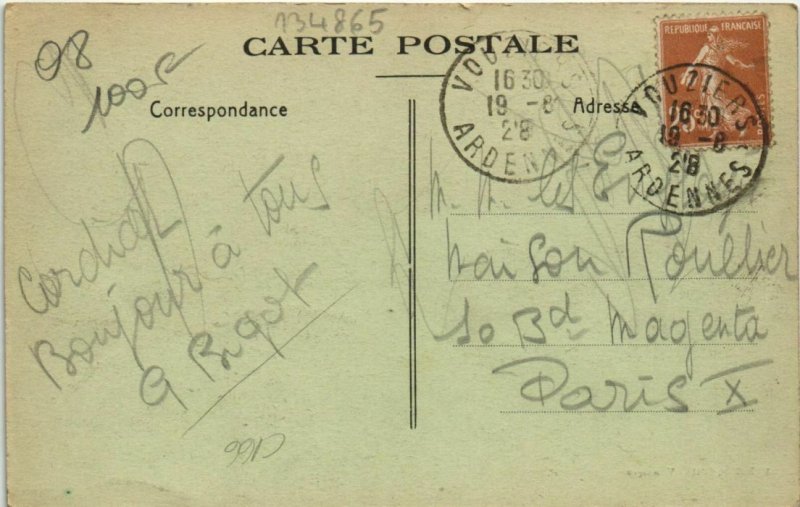 134865
98
1005
CARTE POSTALE
REPUBLIQUE FRANÇAISE
VOUZIERS
16 30
19 -8
28
ARDENNES
VOUZIERS
16 30
19 -8
28
ARDENNES
Correspondance
Adresse
Cordial
Bonjour à tous
G. Bigot
C166
M. M. les
Maison Roullier
10 Bd Magenta
Paris X